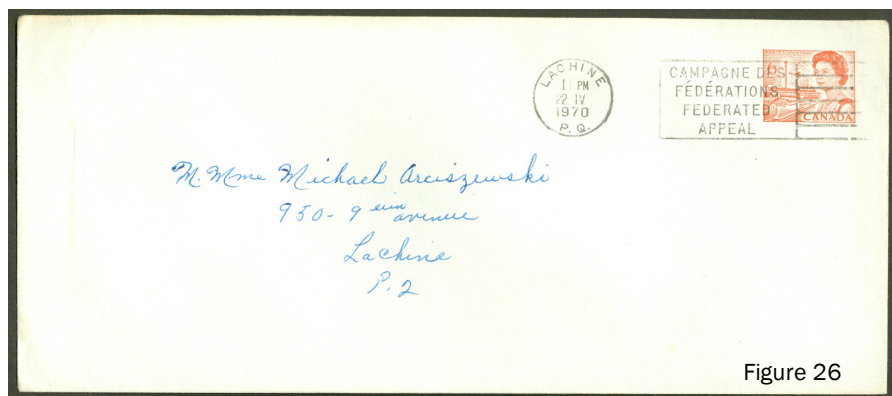 LACHINE
11 PM
22 IV
1970
P. Q.
CAMPAGNE DES
FÉDÉRATIONS
FEDERATED
APPEAL
6
CANADA
M. Mme Michael Arciszewski
950 - 9 eim avenue
Lachine
P. 2
Figure 26